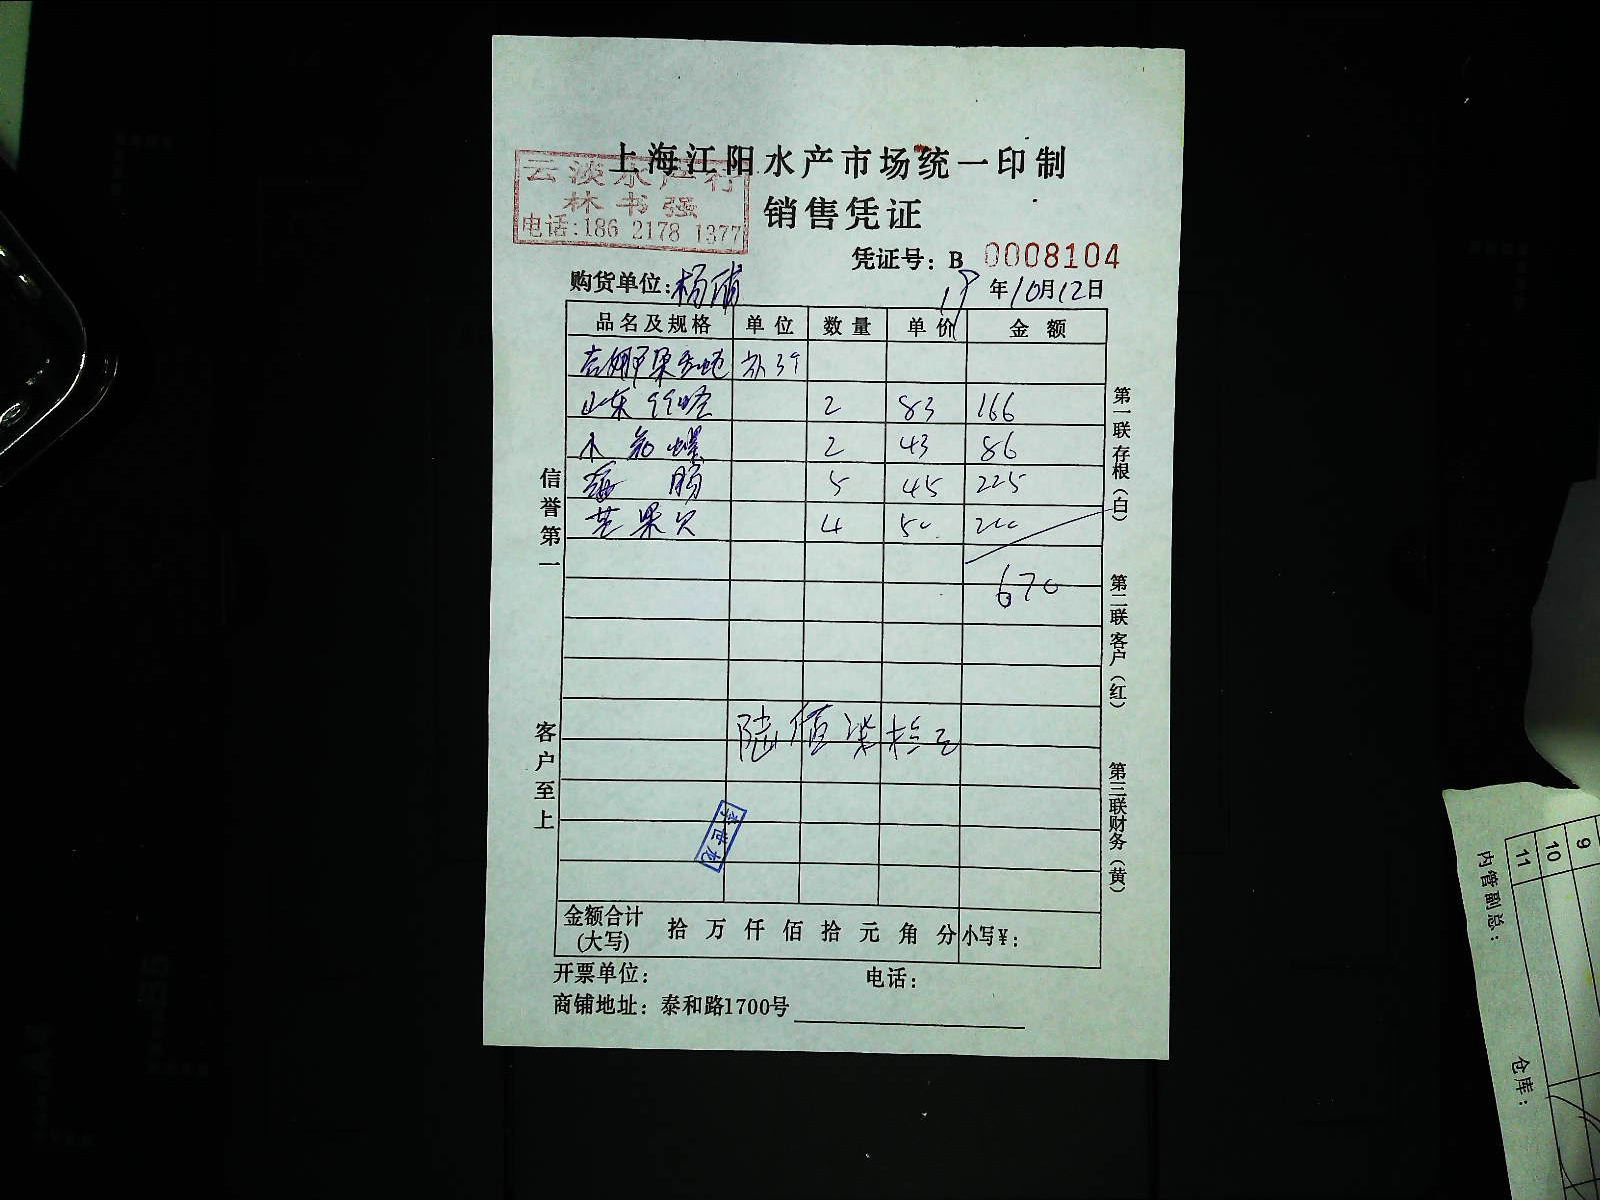 上海江阳水产市场统一印制
云淡水产行
林书强
电话:186 2178 1377
销售凭证
凭证号: B 0008104
购货单位:杨浦
19年10月12日
品名及规格 单位 数量 单价 金额
补3个
山东 2 83 166
螺 2 43 86
海肠 5 45 225
芒果贝 4 50 200
670
陆佰柒拾元
金额合计(大写) 拾 万 仟 佰 拾 元 角 分 小写¥:
开票单位: 电话:
商铺地址: 泰和路1700号
信誉第一
客户至上
第一联存根(白)
第二联客户(红)
第三联财务(黄)
9
10
11
内管副总:
仓库: